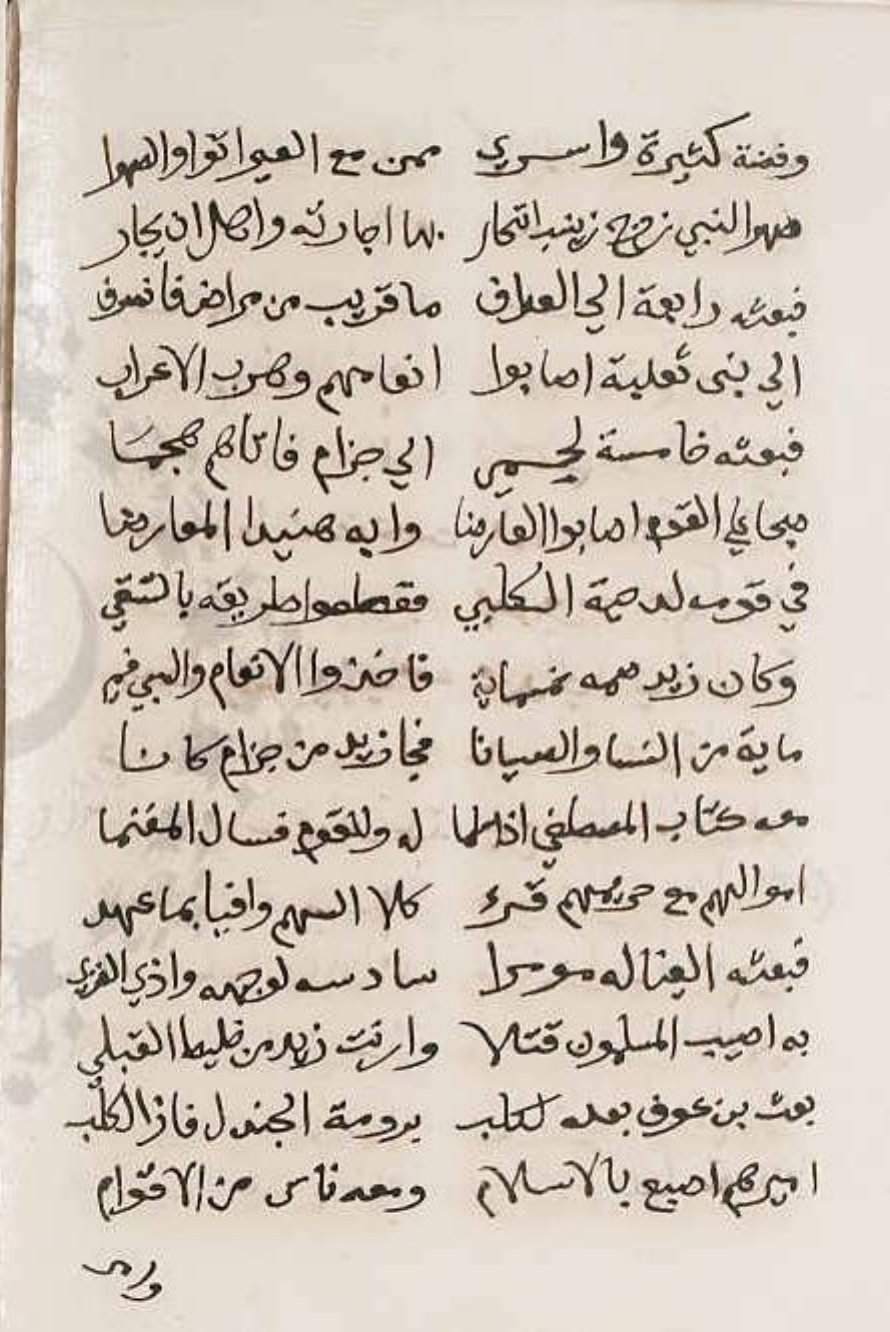 وفضة كثيرة واسري ممن مع العير اتوا والصهرا
صهر النبي زوج زينب استجار بها اجارته واهل ان يجار
فبعثه رابعة الي الطرف ما قريب من مراض فانصرف
الي بني ثعلبة اصابوا انعامهم وهرب الاعراب
فبعثه خامسة لحسمي الي جزام فاتاهم هجما
صبحا علي القوم اصابوا العارضا وابه هنيدا المعارضا
في قومه لدحية الكلبي فقطعوا طريقه بالشقي
وكان زيد معه خمسماية فاخذوا الانعام والسبي فيه
ماية من النسا والصبيانا فجا زيد من جزام كانا
معه كتاب المصطفي اذ له وللقوم فسال المغنما
اموالهم مع حريمهم كلا اليهم وافيا بما عهد
فبعثه ايضا له سادسة لوجهه وادي القري
به اصيب المسلمون قتلا وارتث زيد من خليط القتلي
بعث بن عوف بعده لكلب بدومة الجندل فاز الكلب
اميرهم اصبع بالاسلام ومعه ناس من الاقوام